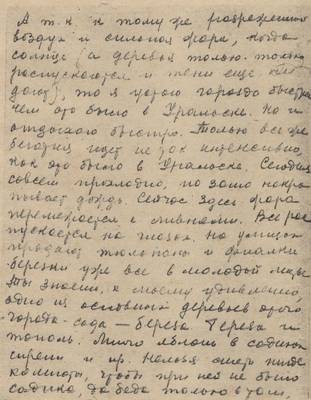 А т.к. к тому же разреженный
воздух и сильная жара, когда
солнце (а деревья только-только
распускаются и тени еще не
дают), то я устаю гораздо быстрее
чем это было в Уральске. Но и
отдыхаю быстро. Только все же
идет не так интенсивно,
как это было в Уральске. Сегодня
совсем прохладно, но зато накра
пывает дождь. Сейчас здесь жара
перемежается с ливнями. Все рас
пускается на глазах. На улицах
продают тюльпаны и фиалки
березки уже все в молодых листь
Ты знаешь, к моему удивлению,
одно из основных деревьев этого
города-сада — береза. Береза и
тополь. Много яблонь в садиках
сирени и пр. Нельзя снять нигде
комнаты, чтобы при ней не было
садика, да беда только в том,